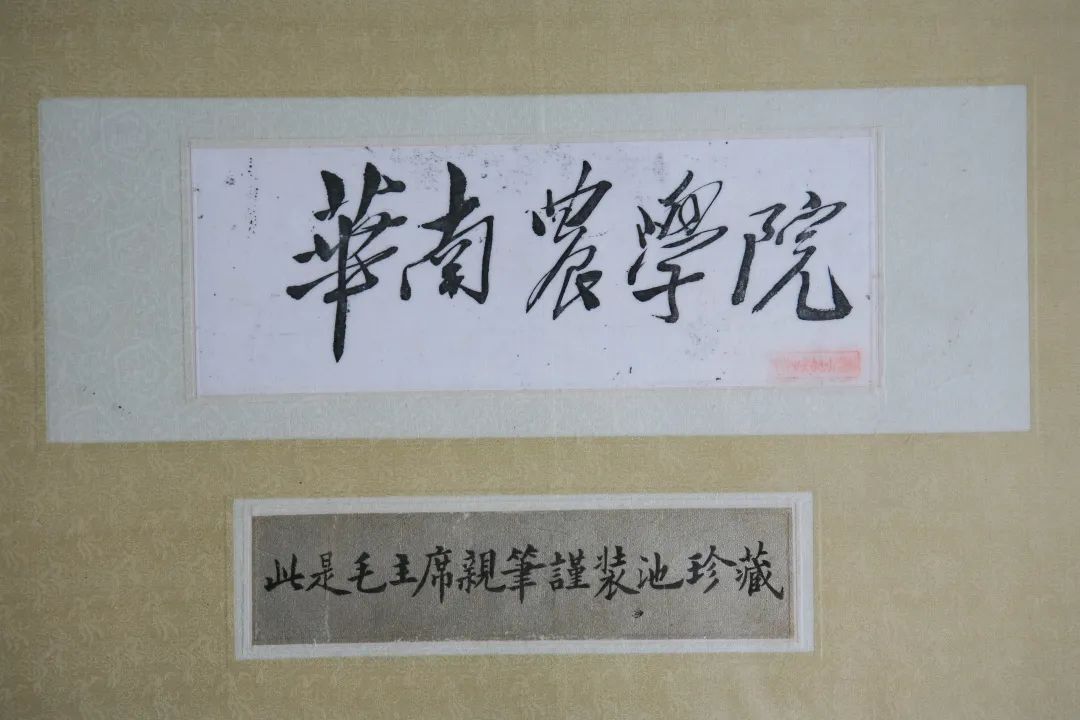 華南農學院
此是毛主席親筆謹装池珍藏